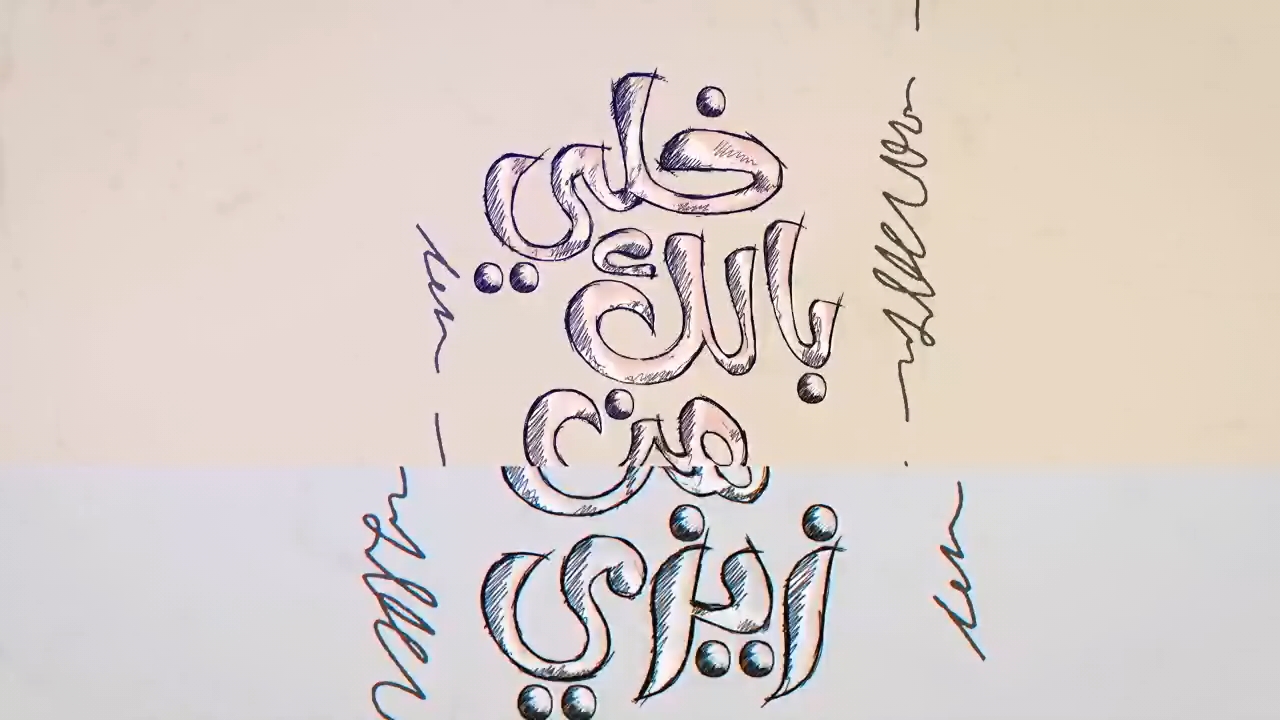 خلي
بالك
من
زيزي